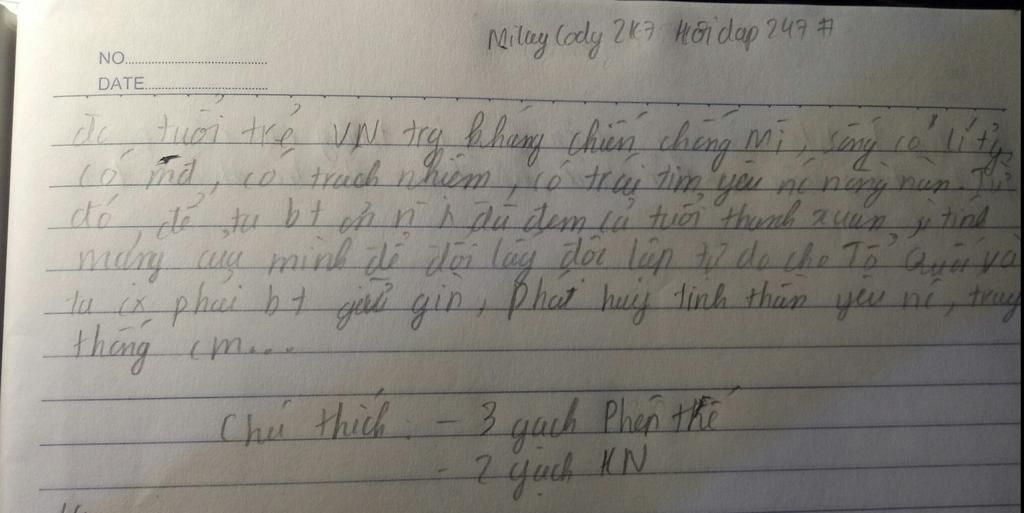 Milley Cody 2K7 Hỏi đáp 247 #
NO
DATE
tuổi trẻ VN trg kháng chiến chống Mĩ, sống có lí
có mđ, có trách nhiệm, có trái tim yêu nc nồng nàn. Từ
đó, để ta bt ơn đã đem cả tuổi thanh xuân, tính
mạng của mình để đổi lấy độc lập tự do cho Tổ Quốc và
ta cx phải bt giữ gìn, phát huy tinh thần yêu nc, truy
thống cm...
Chú thích: - 3 gạch Phép thế
- 2 gạch KN